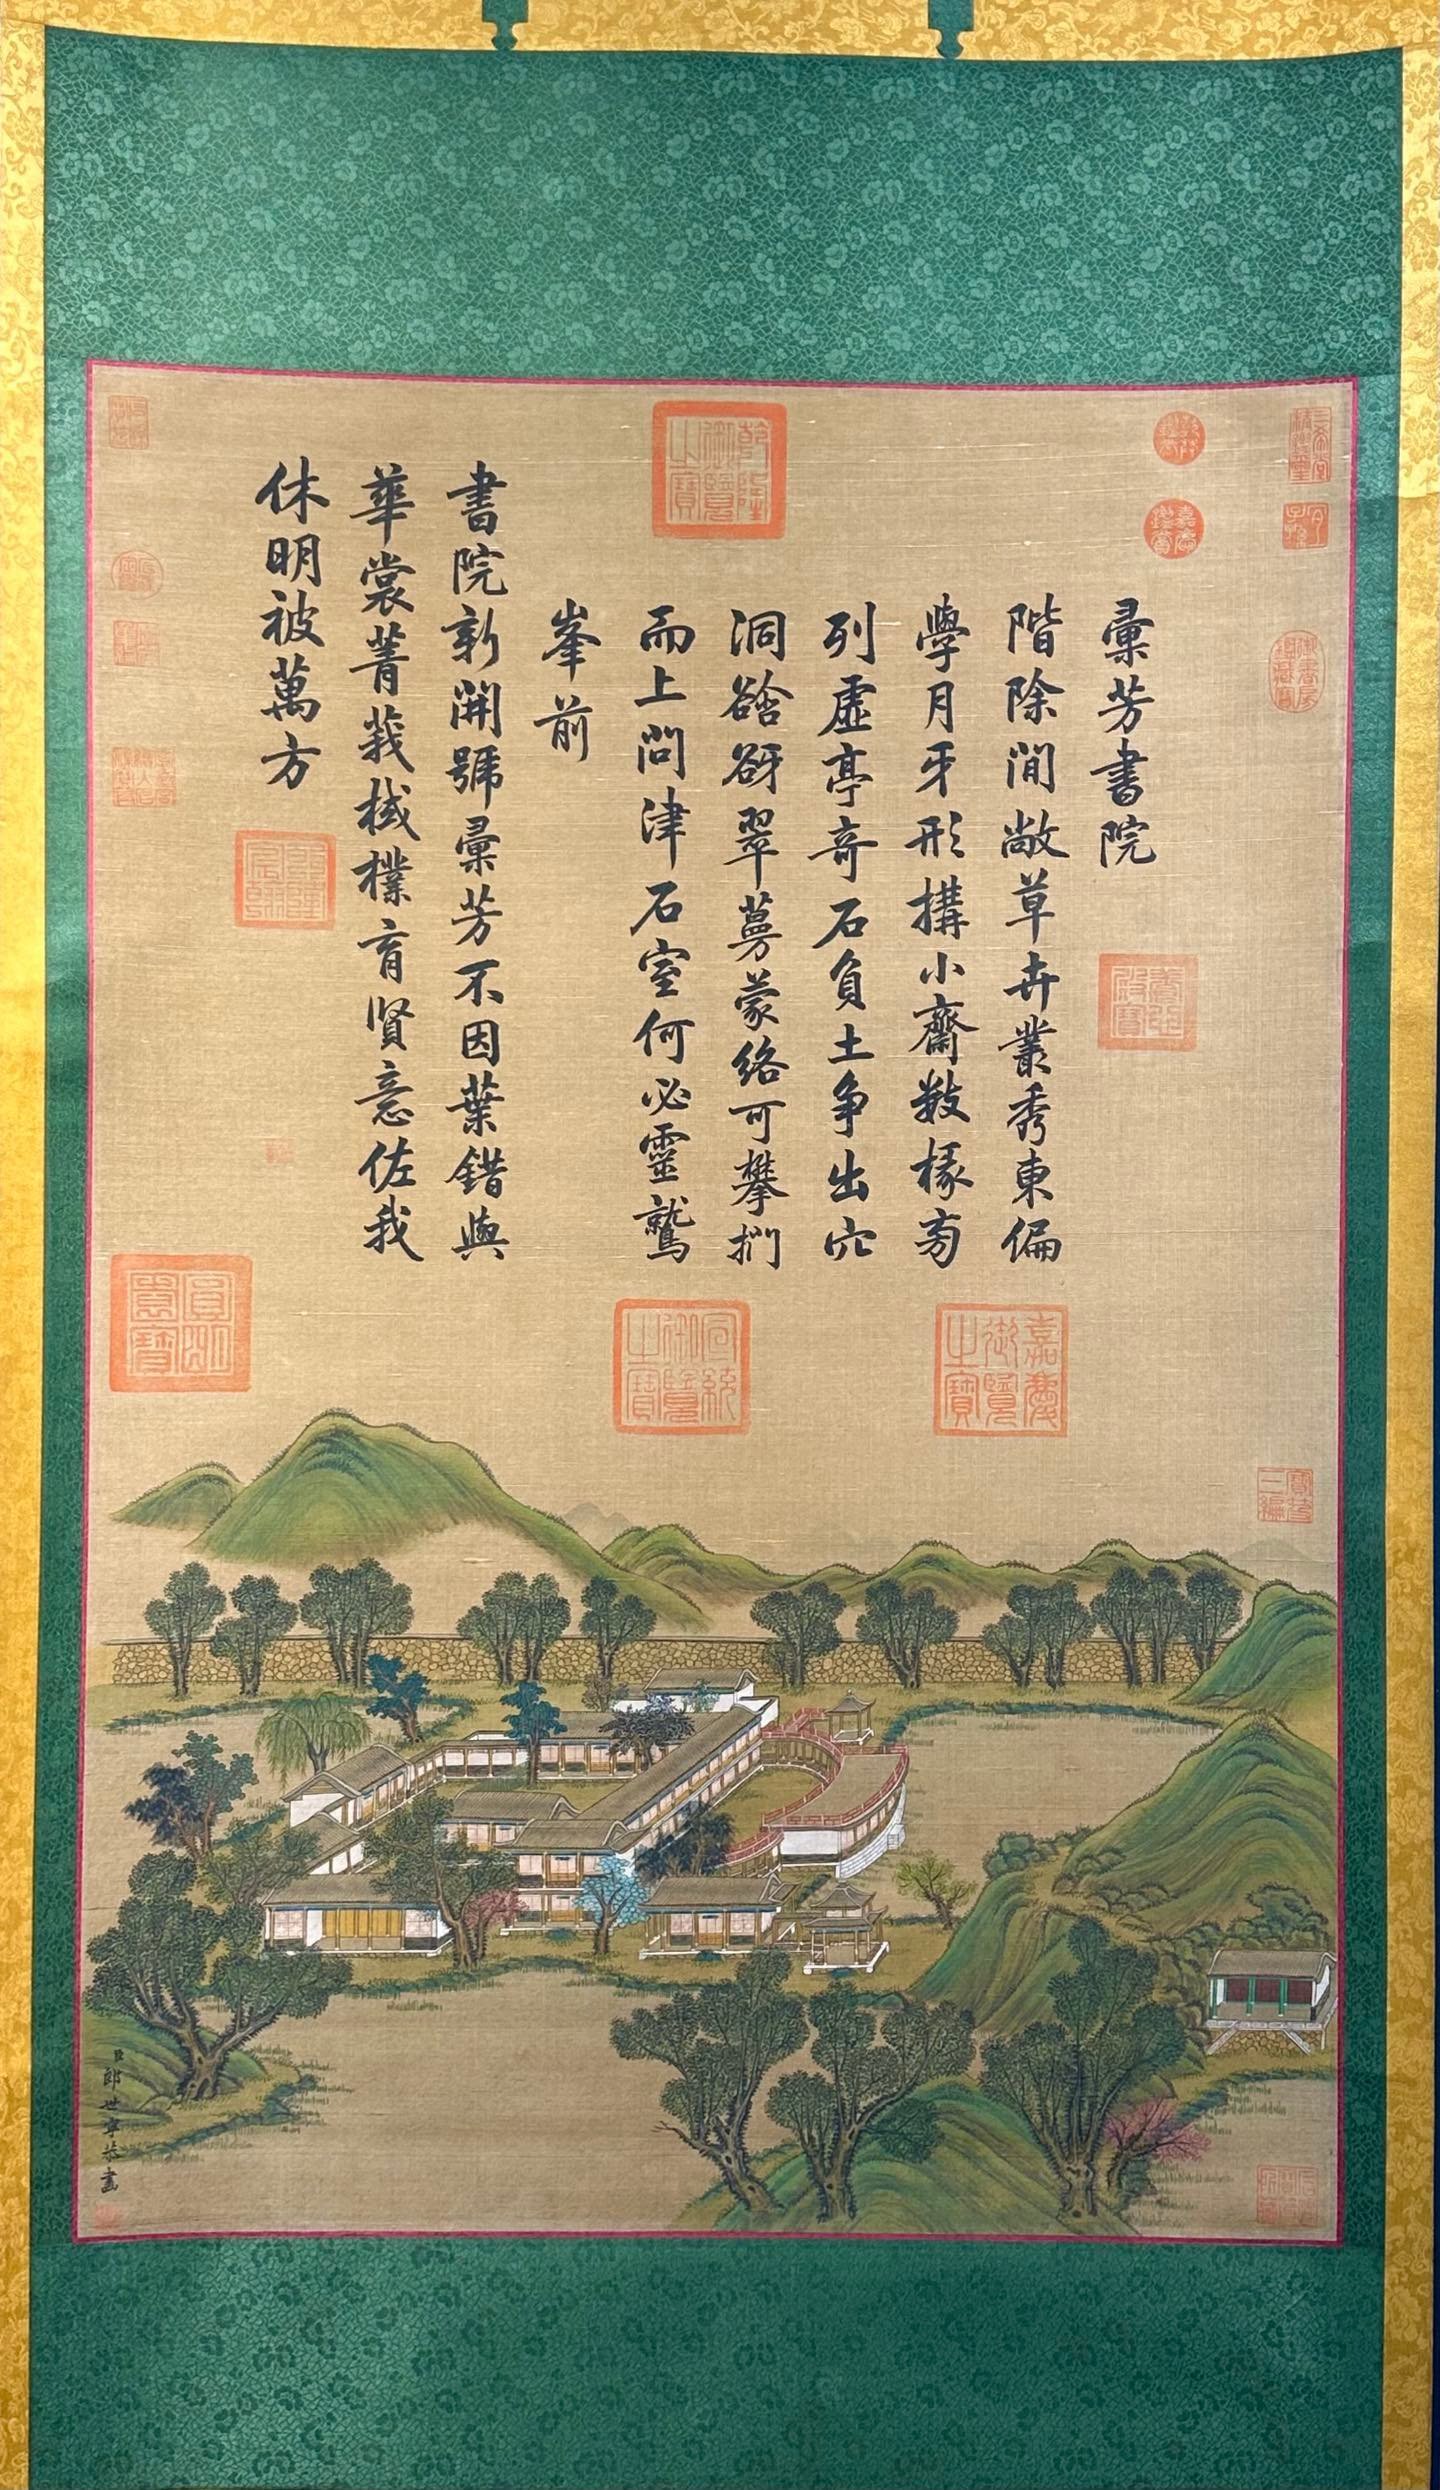 彙芳書院
階除閒敞草卉叢秀東偏
學月牙形構小齋數椽旁
列虛亭奇石負土争出穴
洞谽谺翠蔓蒙絡可攀捫
而上問津石室何必靈鷲
峯前
書院新開號彙芳不因葉錯與
華裳菁莪棫樸育賢意佐我
休明被萬方
臣郎世寧恭畫
乾隆御覽之寶
嘉慶御覽之寶
宣統御覽之寶
圓明園寶
乾隆宸翰
養心殿寶
三希堂精鑑璽
宜子孫
乾隆鑑賞
嘉慶鑑賞
御書房鑑藏寶
寶笈三編
石渠寶笈所藏